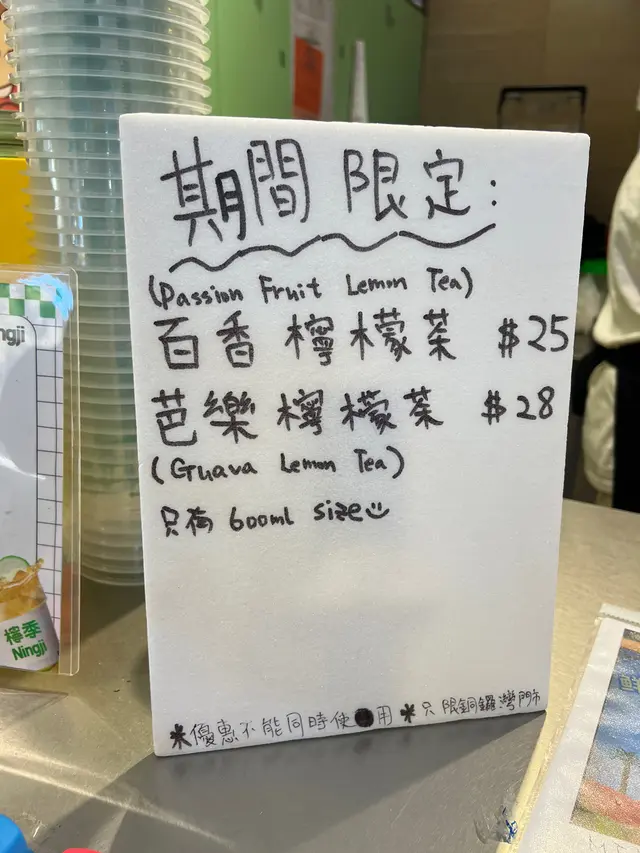 期間限定:
(Passion Fruit Lemon Tea)
百香檸檬茶 $25
芭樂檸檬茶 $28
(Guava Lemon Tea)
只有 600ml size
*優惠不能同時使用 *只限銅鑼灣門市
ngji
檸季
Ningji